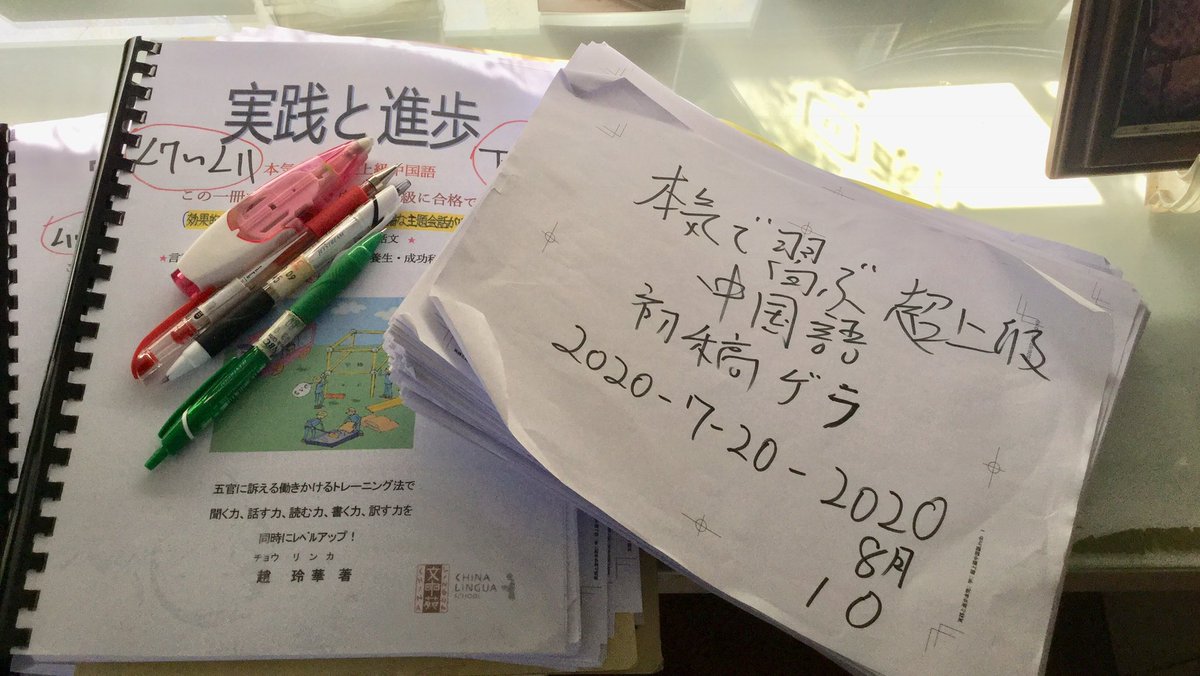 実践と進歩
本気 上級中国語
この一冊 級に合格で
効果的 な主題会話が
養生・成功
五官に訴える働きかけるトレーニング法で
聞く力、話す力、読む力、書く力、訳す力を
同時にレベルアップ！
チョウ リン カ
趙 玲華 著
CHINA
LINGUA
SCHOOL
本気で習ぶ 超上級
中国語
初稿ゲラ
2020-7-20-2020
8月
10